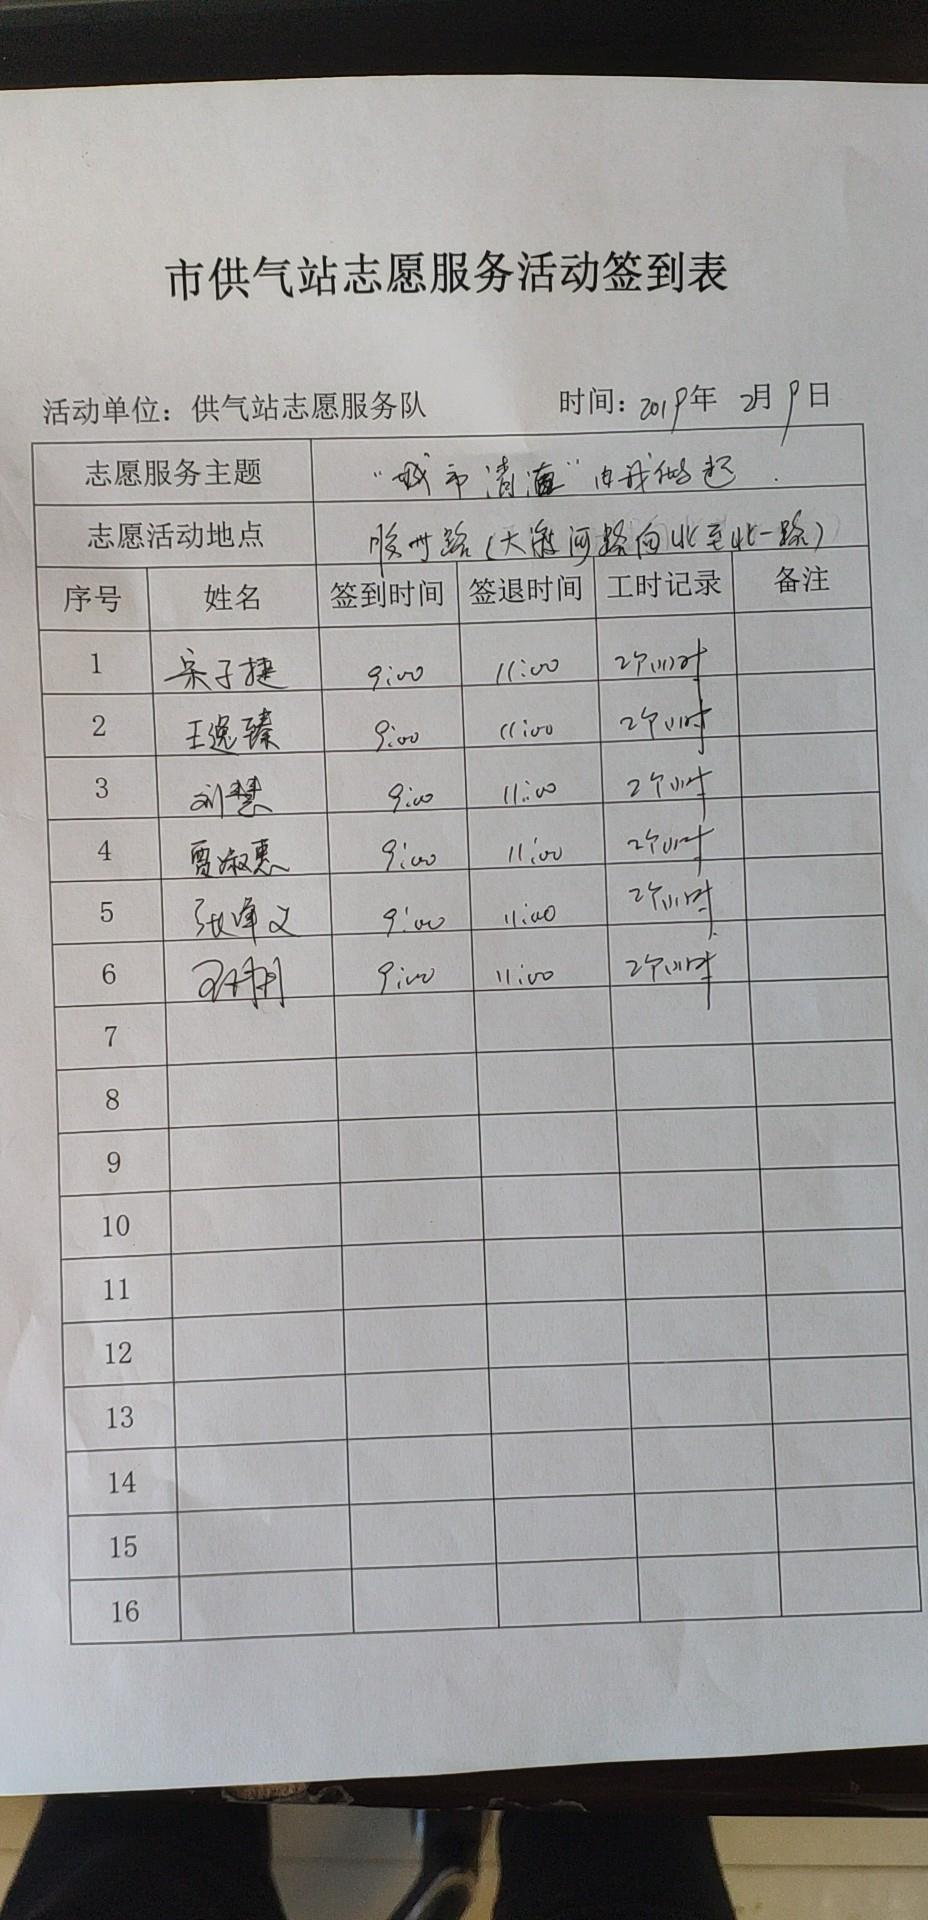 市供气站志愿服务活动签到表
活动单位：供气站志愿服务队 时间：2019年 2月 9日
志愿服务主题 “城市清洁”由我做起.
志愿活动地点 胶州路(大渡河路向北至北一路)
序号 姓名 签到时间 签退时间 工时记录 备注
1 宋子捷 9:00 11:00 2个小时
2 王逸臻 9:00 11:00 2个小时
3 刘慧 9:00 11:00 2个小时
4 贾淑惠 9:00 11:00 2个小时
5 张峰义 9:00 11:00 2个小时
6 9:00 11:00 2个小时
7
8
9
10
11
12
13
14
15
16